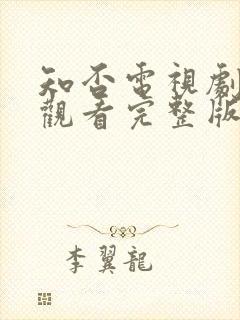 知否電視劇
觀看完整版
李翼龍